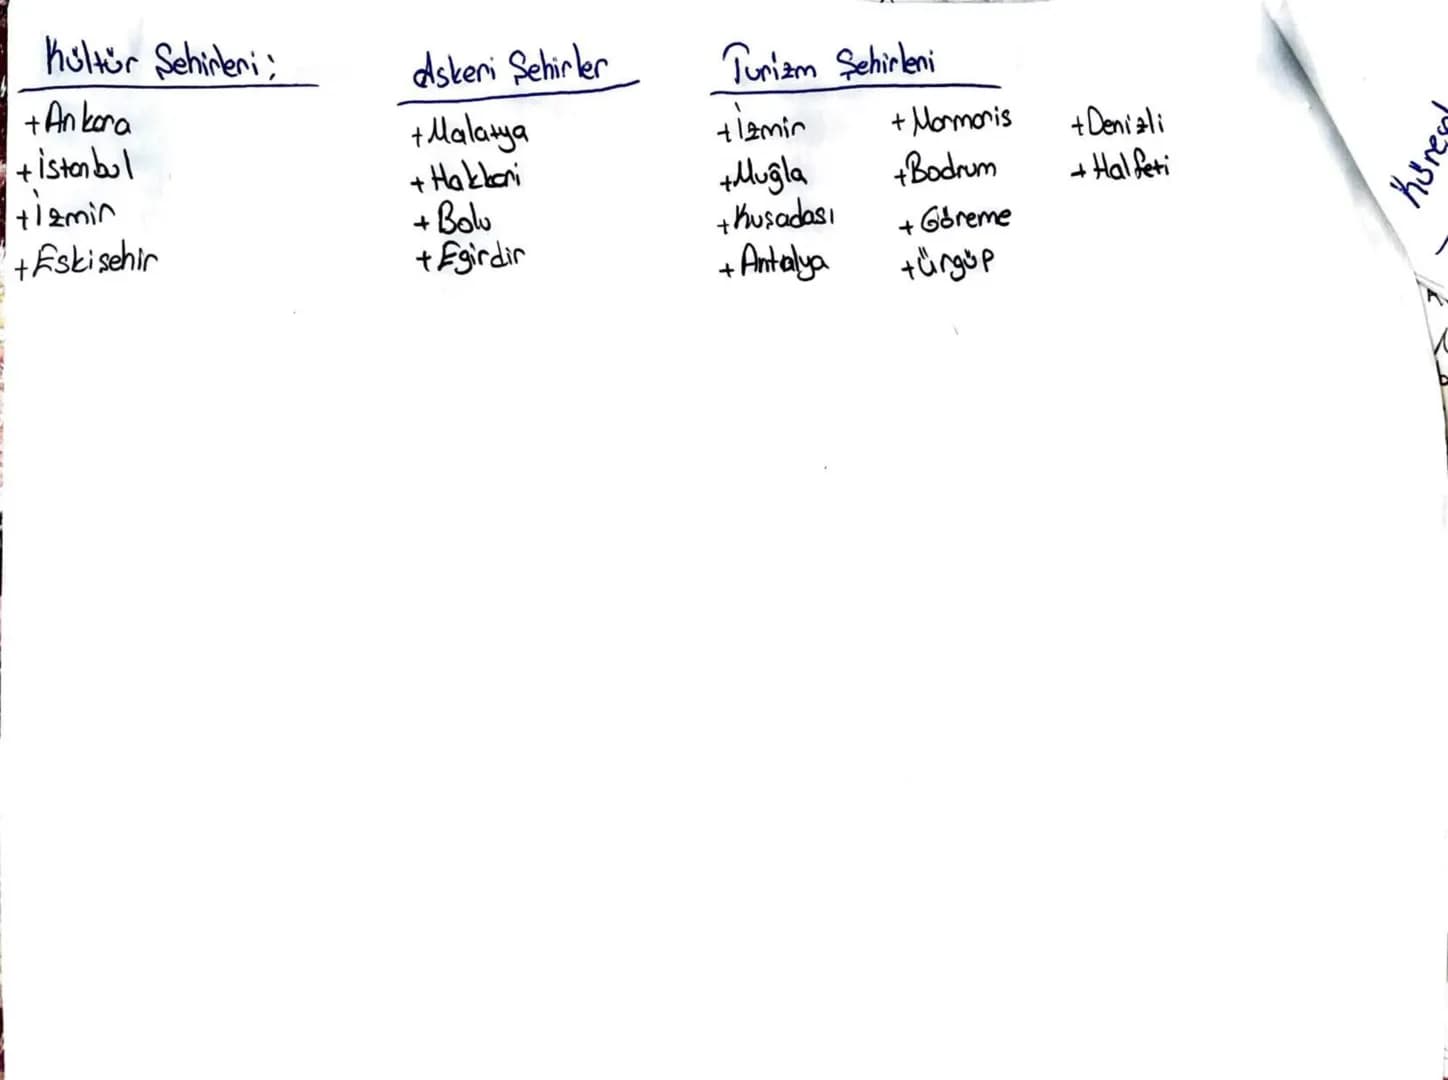 Kültür Şehirleri:
+Ankara
+İstanbul
+İzmir
+Eskişehir
Askeri Şehirler
+Malatya
+Hakkari
+Bolu
+Egirdir
Turizm Şehirleri
+İzmir
+Muğla
+Kuşadası
+Antalya
+Marmaris
+Bodrum
+Göreme
+Ürgüp
+Denizli
+Halfeti